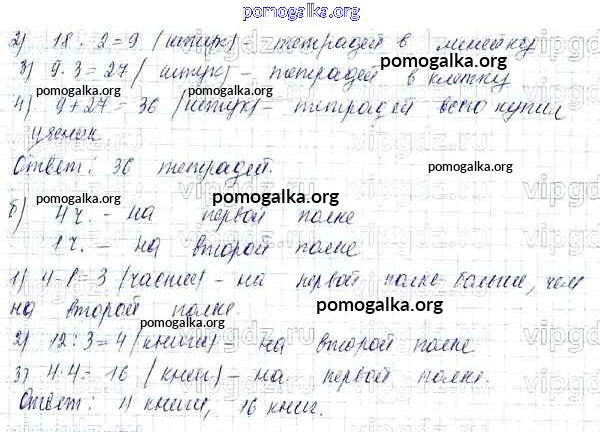 pomogalka.org
2) 18 : 2 = 9 (штук) - тетрадей в линейку
3) 9 · 3 = 27 (штук) - тетрадей в клетку
pomogalka.org
pomogalka.org pomogalka.org
4) 9 + 27 = 36 (штук) - тетрадей всего купил
ученик
pomogalka.org
Ответ: 36 тетрадей.
pomogalka.org
pomogalka.org
pomogalka.org
б) 4 ч. - на первой полке
1 ч. - на второй полке
1) 4 - 1 = 3 (части) - на первой полке больше, чем
на второй полке.
pomogalka.org
pomogalka.org
2) 12 : 3 = 4 (книги) на второй полке
pomogalka.org
3) 4 · 4 = 16 (книг) - на первой полке.
Ответ: 4 книги, 16 книг.
pomogalka.org